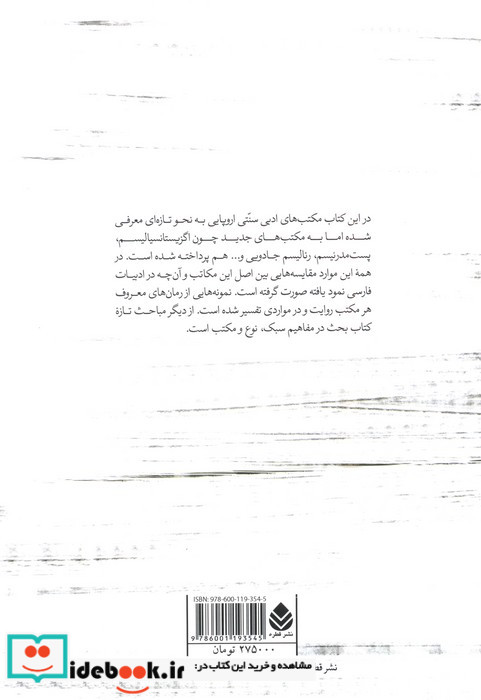 در این کتاب مکتب‌های ادبی سنّتی اروپایی به نحو تازه‌ای معرفی
شده اما به مکتب‌های جدید چون اگزیستانسیالیسم،
پست‌مدرنیسم، رئالیسم جادویی و... هم پرداخته شده است. در
همهٔ این موارد مقایسه‌هایی بین اصل این مکاتب و آن‌چه در ادبیات
فارسی نمود یافته صورت گرفته است. نمونه‌هایی از رمان‌های معروف
هر مکتب روایت و در مواردی تفسیر شده است. از دیگر مباحث تازهٔ
کتاب بحث در مفاهیم سبک، نوع و مکتب است.
ISBN: 978-600-119-354-5
9 786001 193545
۲۷۵۰۰۰ تومان
نشر قطره
نشر قط
مشاهده و خرید این کتاب در:
idebook.ir